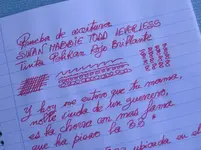 Prueba de escritura
SWAN MABBIE TODD LEVERLESS
Tinta Pelikan Rojo Brillante
Y hoy me entero que tu mama,
noble viuda de un guerrero,
es la chorra con más fama
que ha pisao la 33"